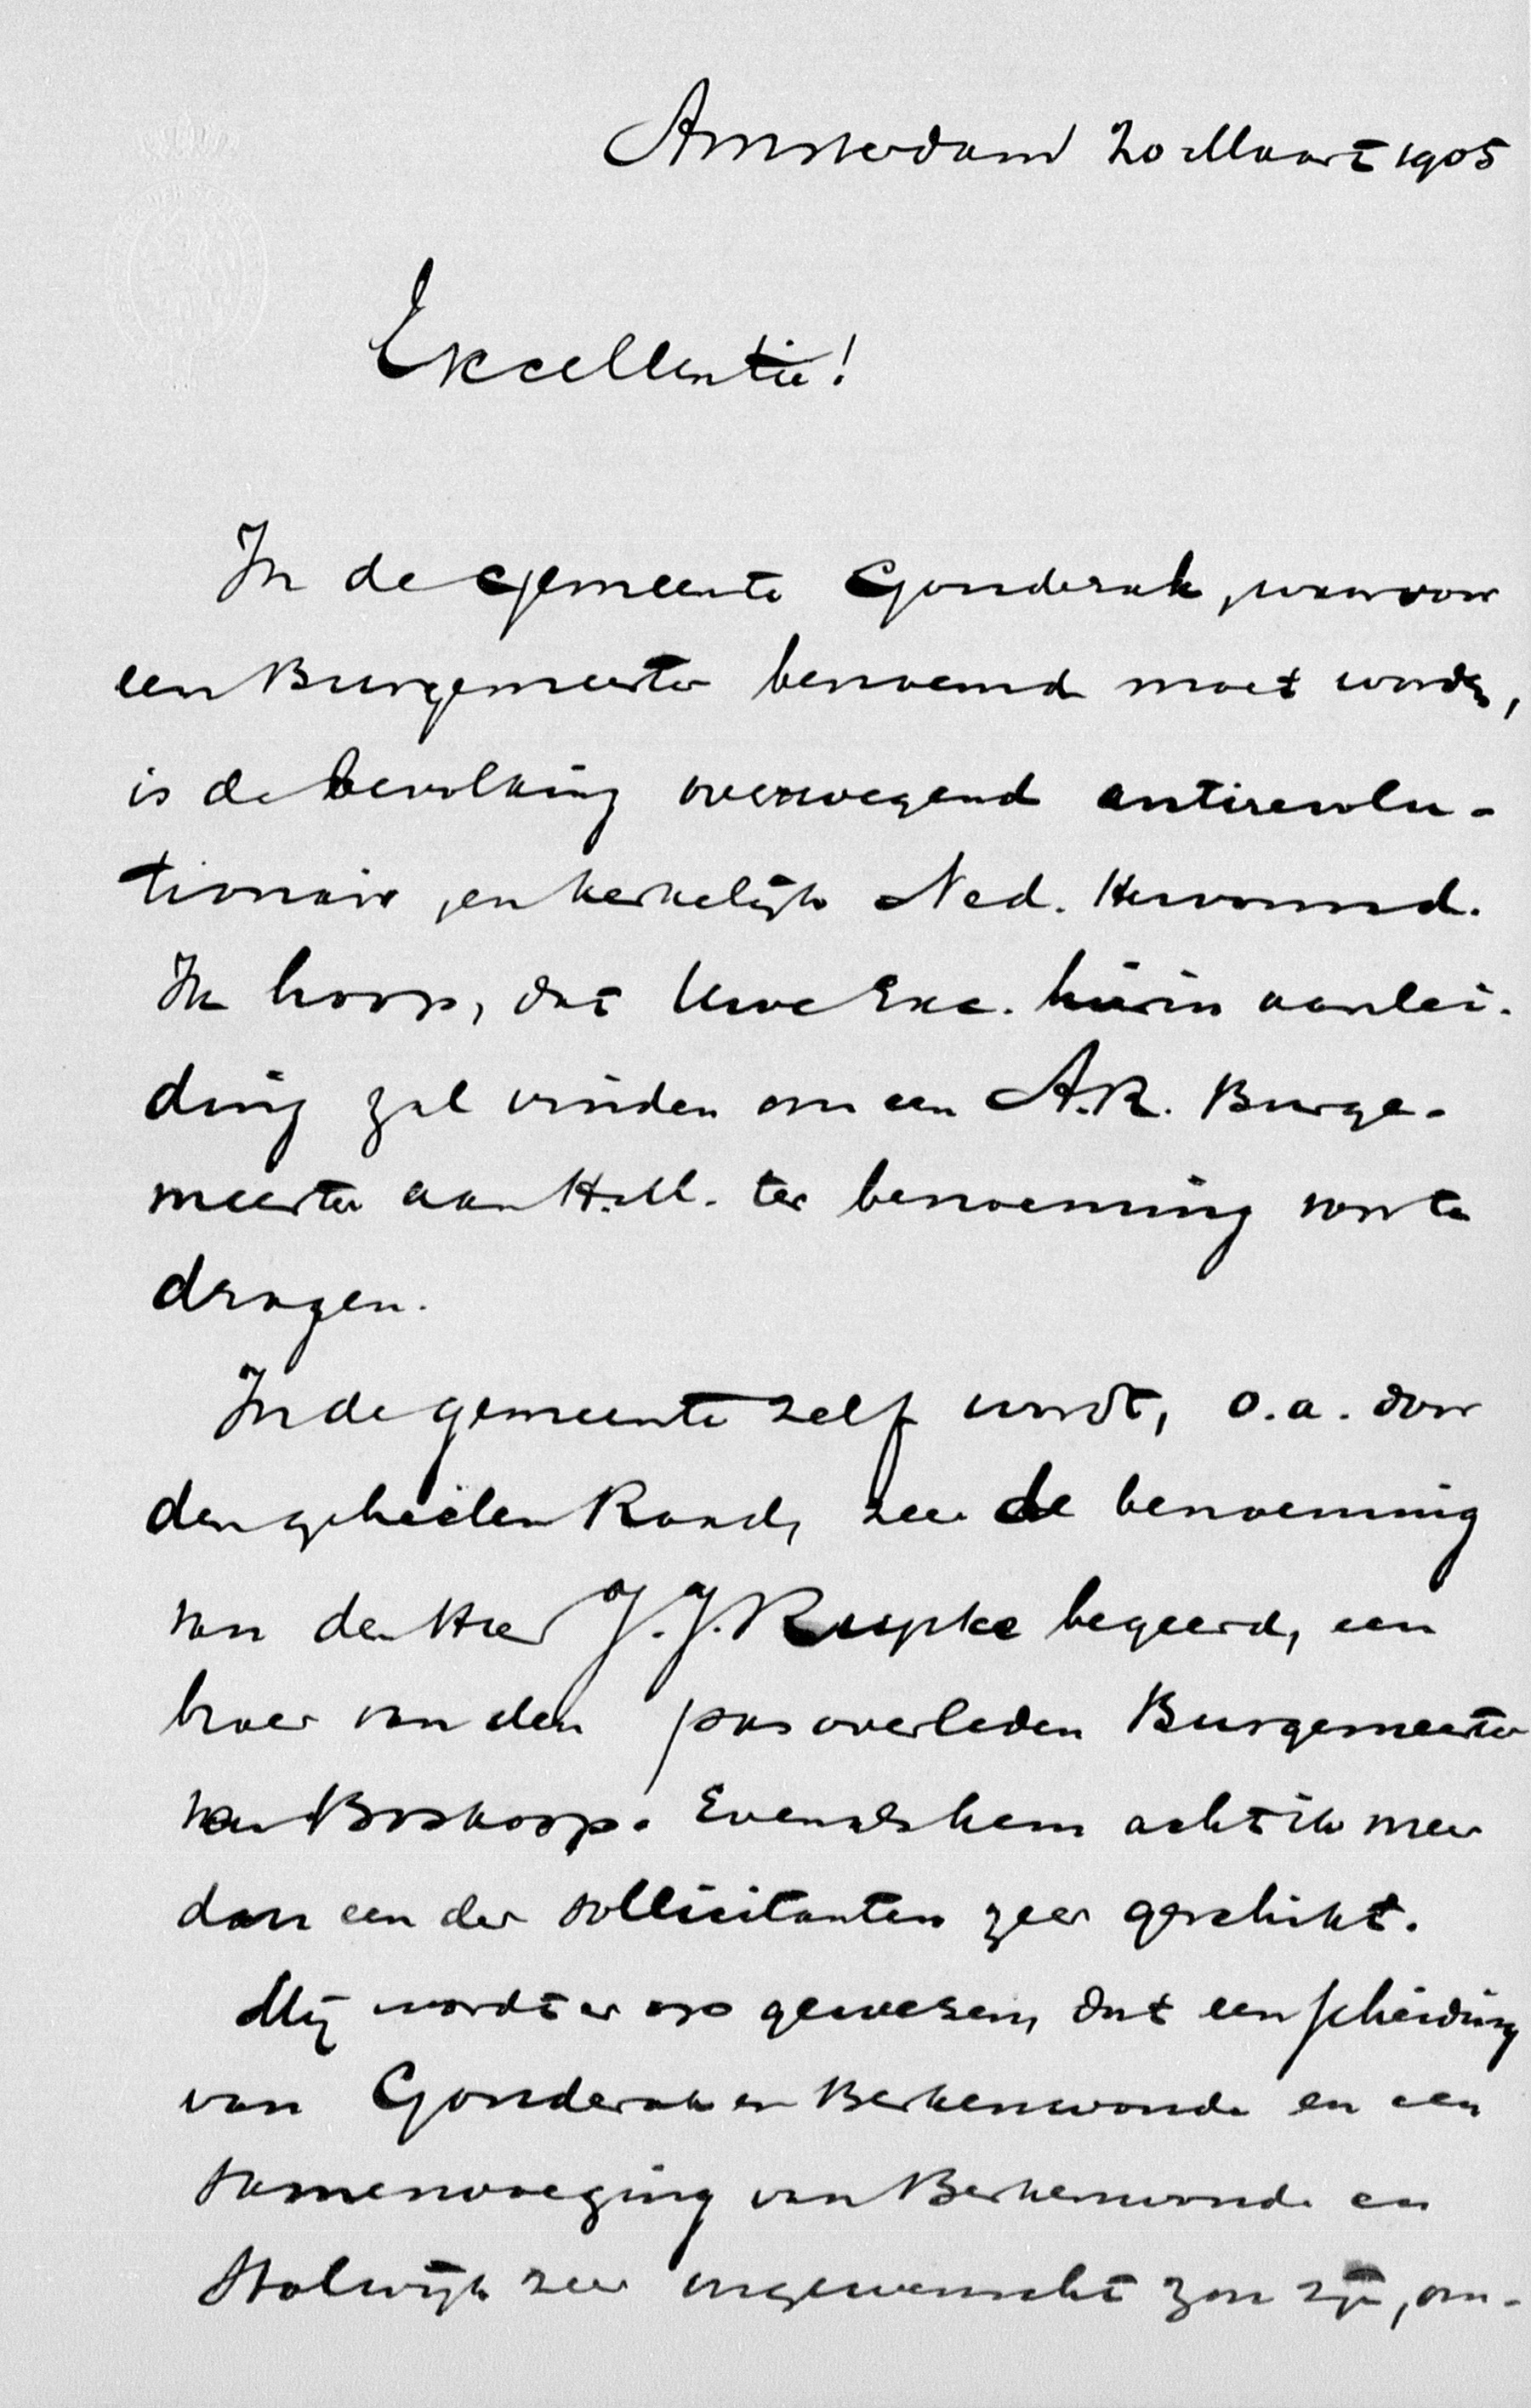 Amsterdam 20 Maart 1905
Excellentie!
In de gemeente Gouderak, waarvoor
een Burgemeester benoemd moet worden,
is de bevolking overwegend antirevolu-
tionair, en kerkelijk Ned. Hervormd.
Ik hoop, dat Uwe Exc. hierin aanlei-
ding zal vinden om een A.R. Burge-
meester aan H.M. ter benoeming voor te
dragen.
In de gemeente zelf wordt, o.a. door
den geheelen Raad, zeer de benoeming
van den Heer J.J. Rupke begeerd, een
broer van den pas overleden Burgemeester
van Boskoop. Evenals hem acht ik meer
dan een der sollicitanten zeer geschikt.
Mij wordt er op gewezen, dat een scheiding
van Gouderak en Berkenwoude en een
samenvoeging van Berkenwoude en
Stolwijk zeer ongewenscht zou zijn, om-